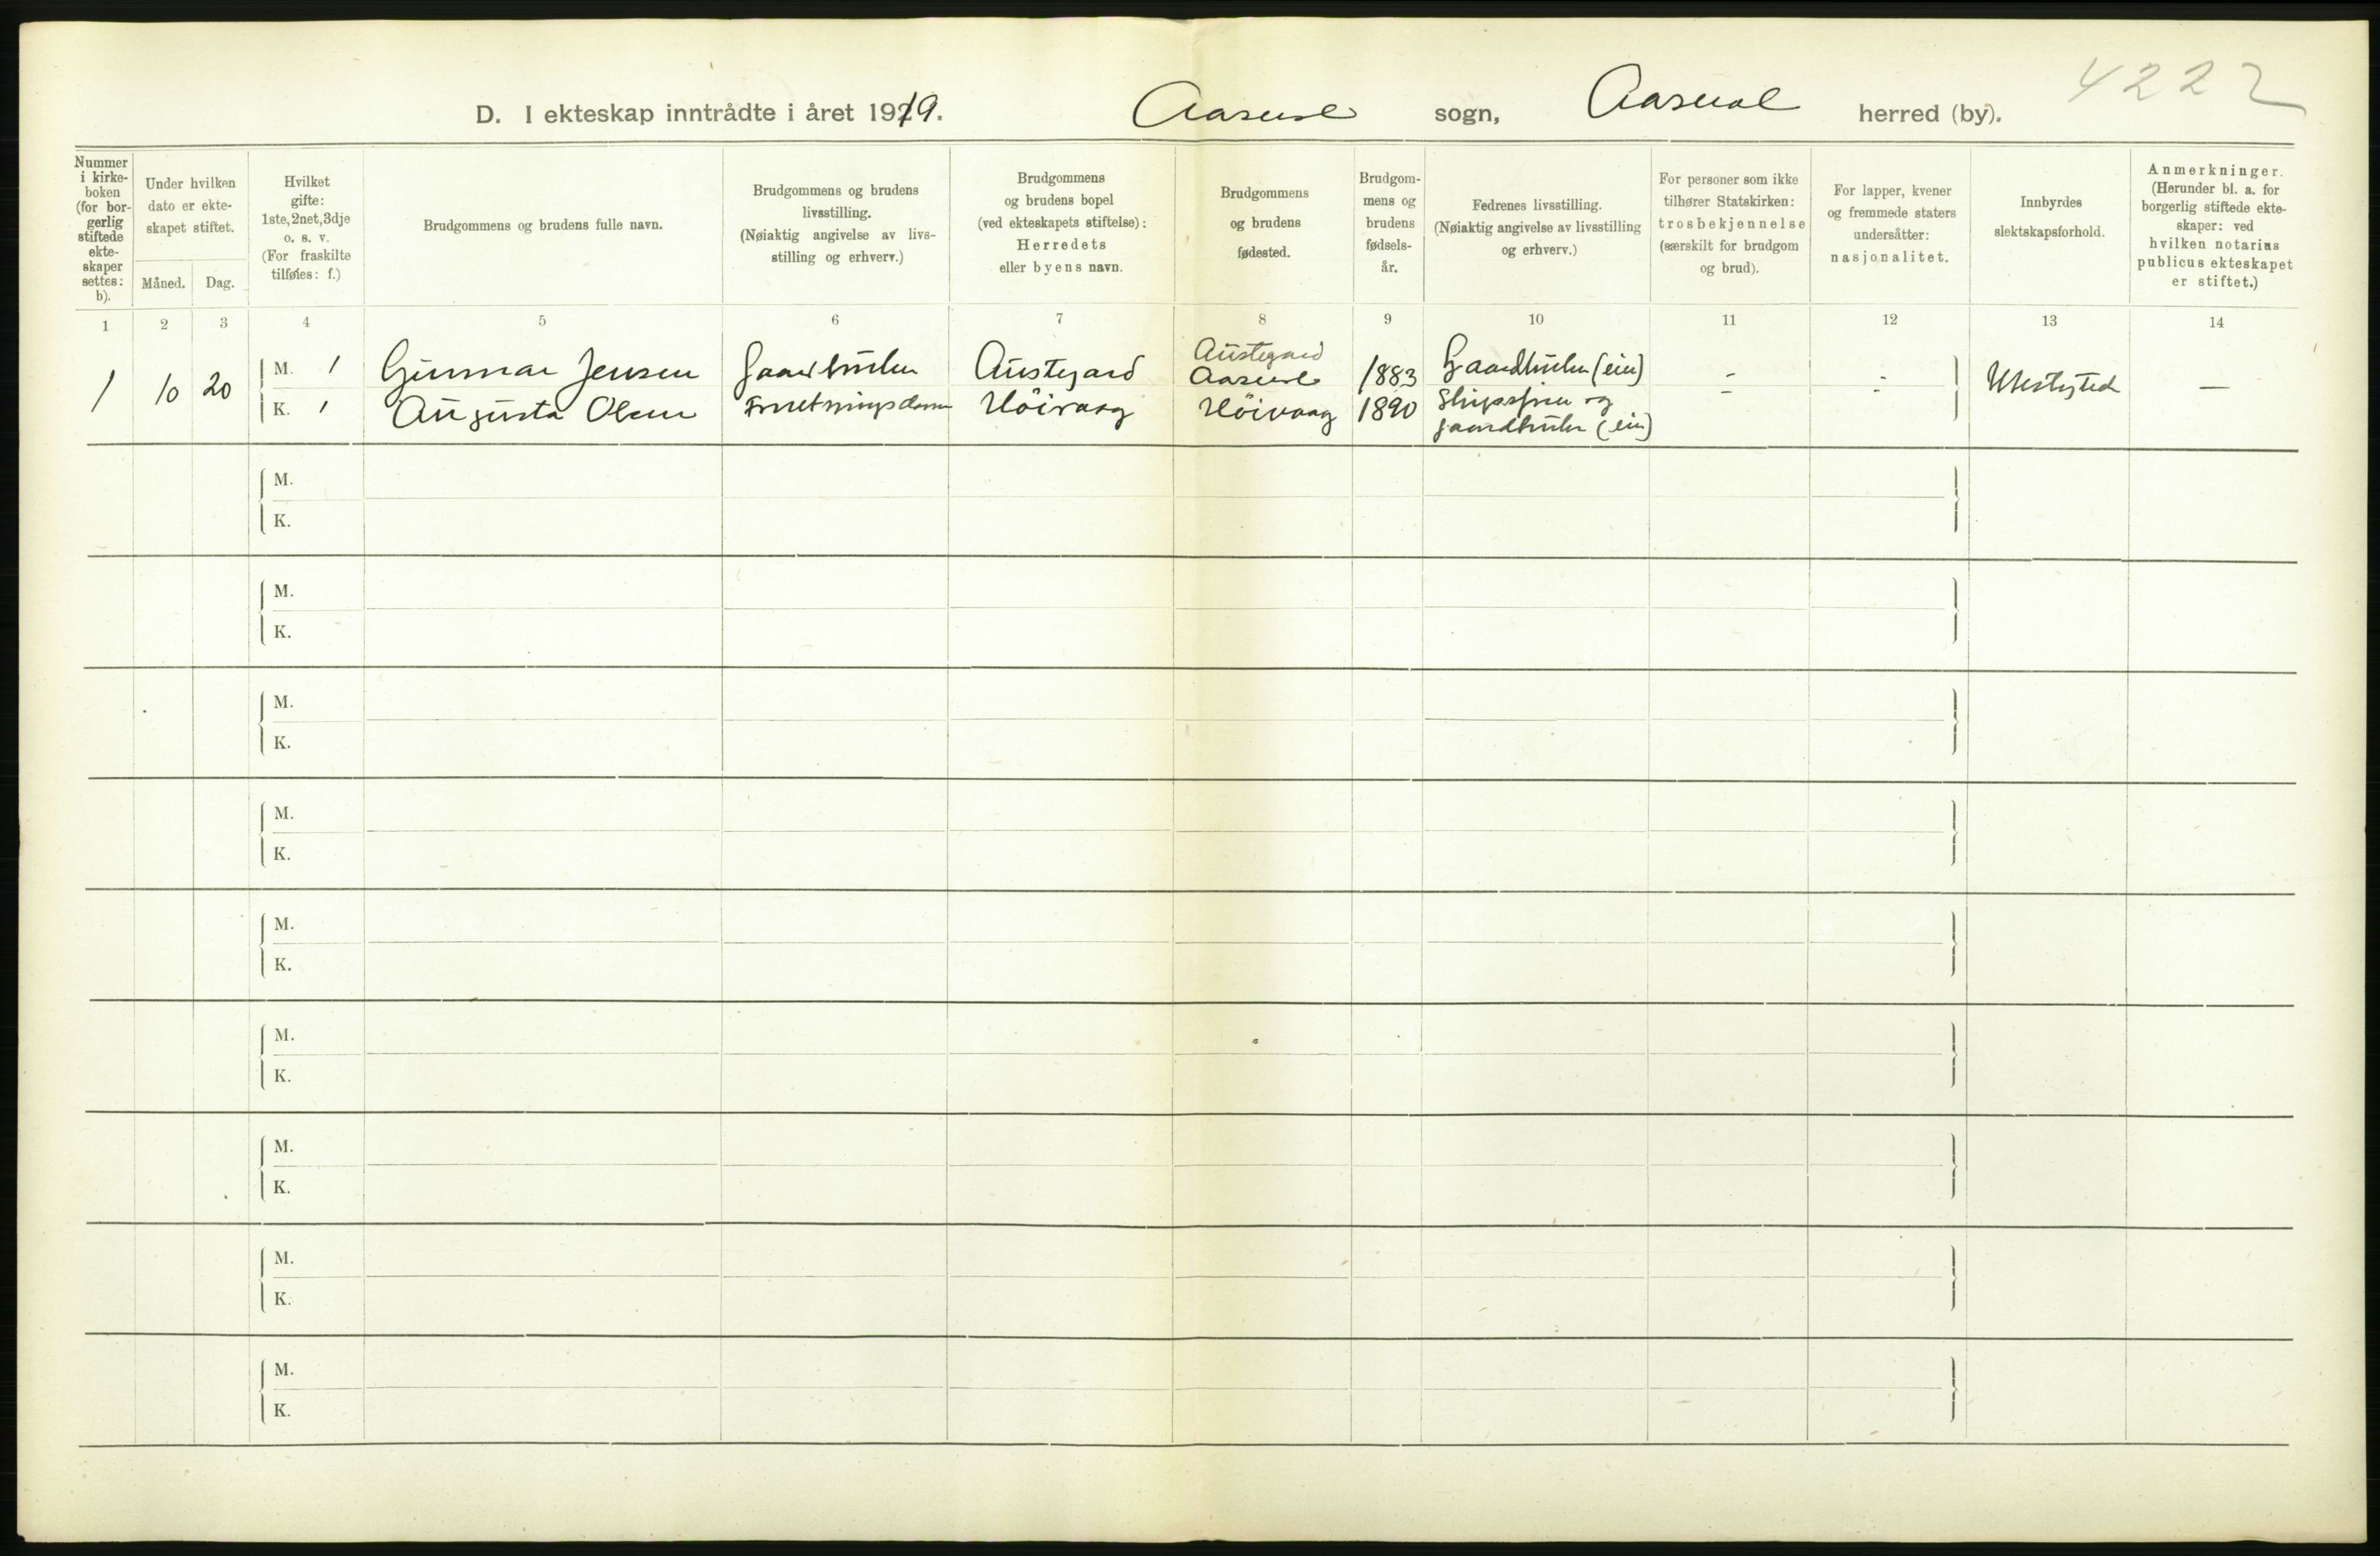 D. I ekteskap inntrådte i året 1919. Aaseral sogn, Aaseral herred (by). 4222
Nummer
i kirke-
boken
(for bor-
gerlig
stiftede
ekte-
skaper
settes:
b).
Under hvilken
dato er ekte-
skapet stiftet.
Måned. Dag.
Hvilket
gifte:
1ste, 2net, 3dje
o. s. v.
(For fraskilte
tilføies: f.)
Brudgommens og brudens fulle navn.
Brudgommens og brudens
livsstilling.
(Nøiaktig angivelse av livs-
stilling og erhverv.)
Brudgommens
og brudens bopel
(ved ekteskapets stiftelse):
Herredets
eller byens navn.
Brudgommens
og brudens
fødested.
Brudgom-
mens og
brudens
fødsels-
år.
Fedrenes livsstilling.
(Nøiaktig angivelse av livsstilling
og erhverv.)
For personer som ikke
tilhører Statskirken:
trosbekjennelse
(særskilt for brudgom
og brud).
For lapper, kvener
og fremmede staters
undersåtter:
nasjonalitet.
Innbyrdes
slektskapsforhold.
Anmerkninger.
(Herunder bl. a. for
borgerlig stiftede ekte-
skaper: ved
hvilken notarius
publicus ekteskapet
er stiftet.)
1 2 3 4 5 6 7 8 9 10 11 12 13 14
1 10 20
M. 1 Gunnar Jensen Gaardbruker Austegard Austegard
Aaseral 1883 Gaardbruker (eier) - -
K. 1 Augusta Olsen Forretningsdame Höivaag Höivaag 1890 Skipsfører og
gaardbruker (eier) - -
Ubeslegted —
M.
K.
M.
K.
M.
K.
M.
K.
M.
K.
M.
K.
M.
K.
M.
K.
M.
K.